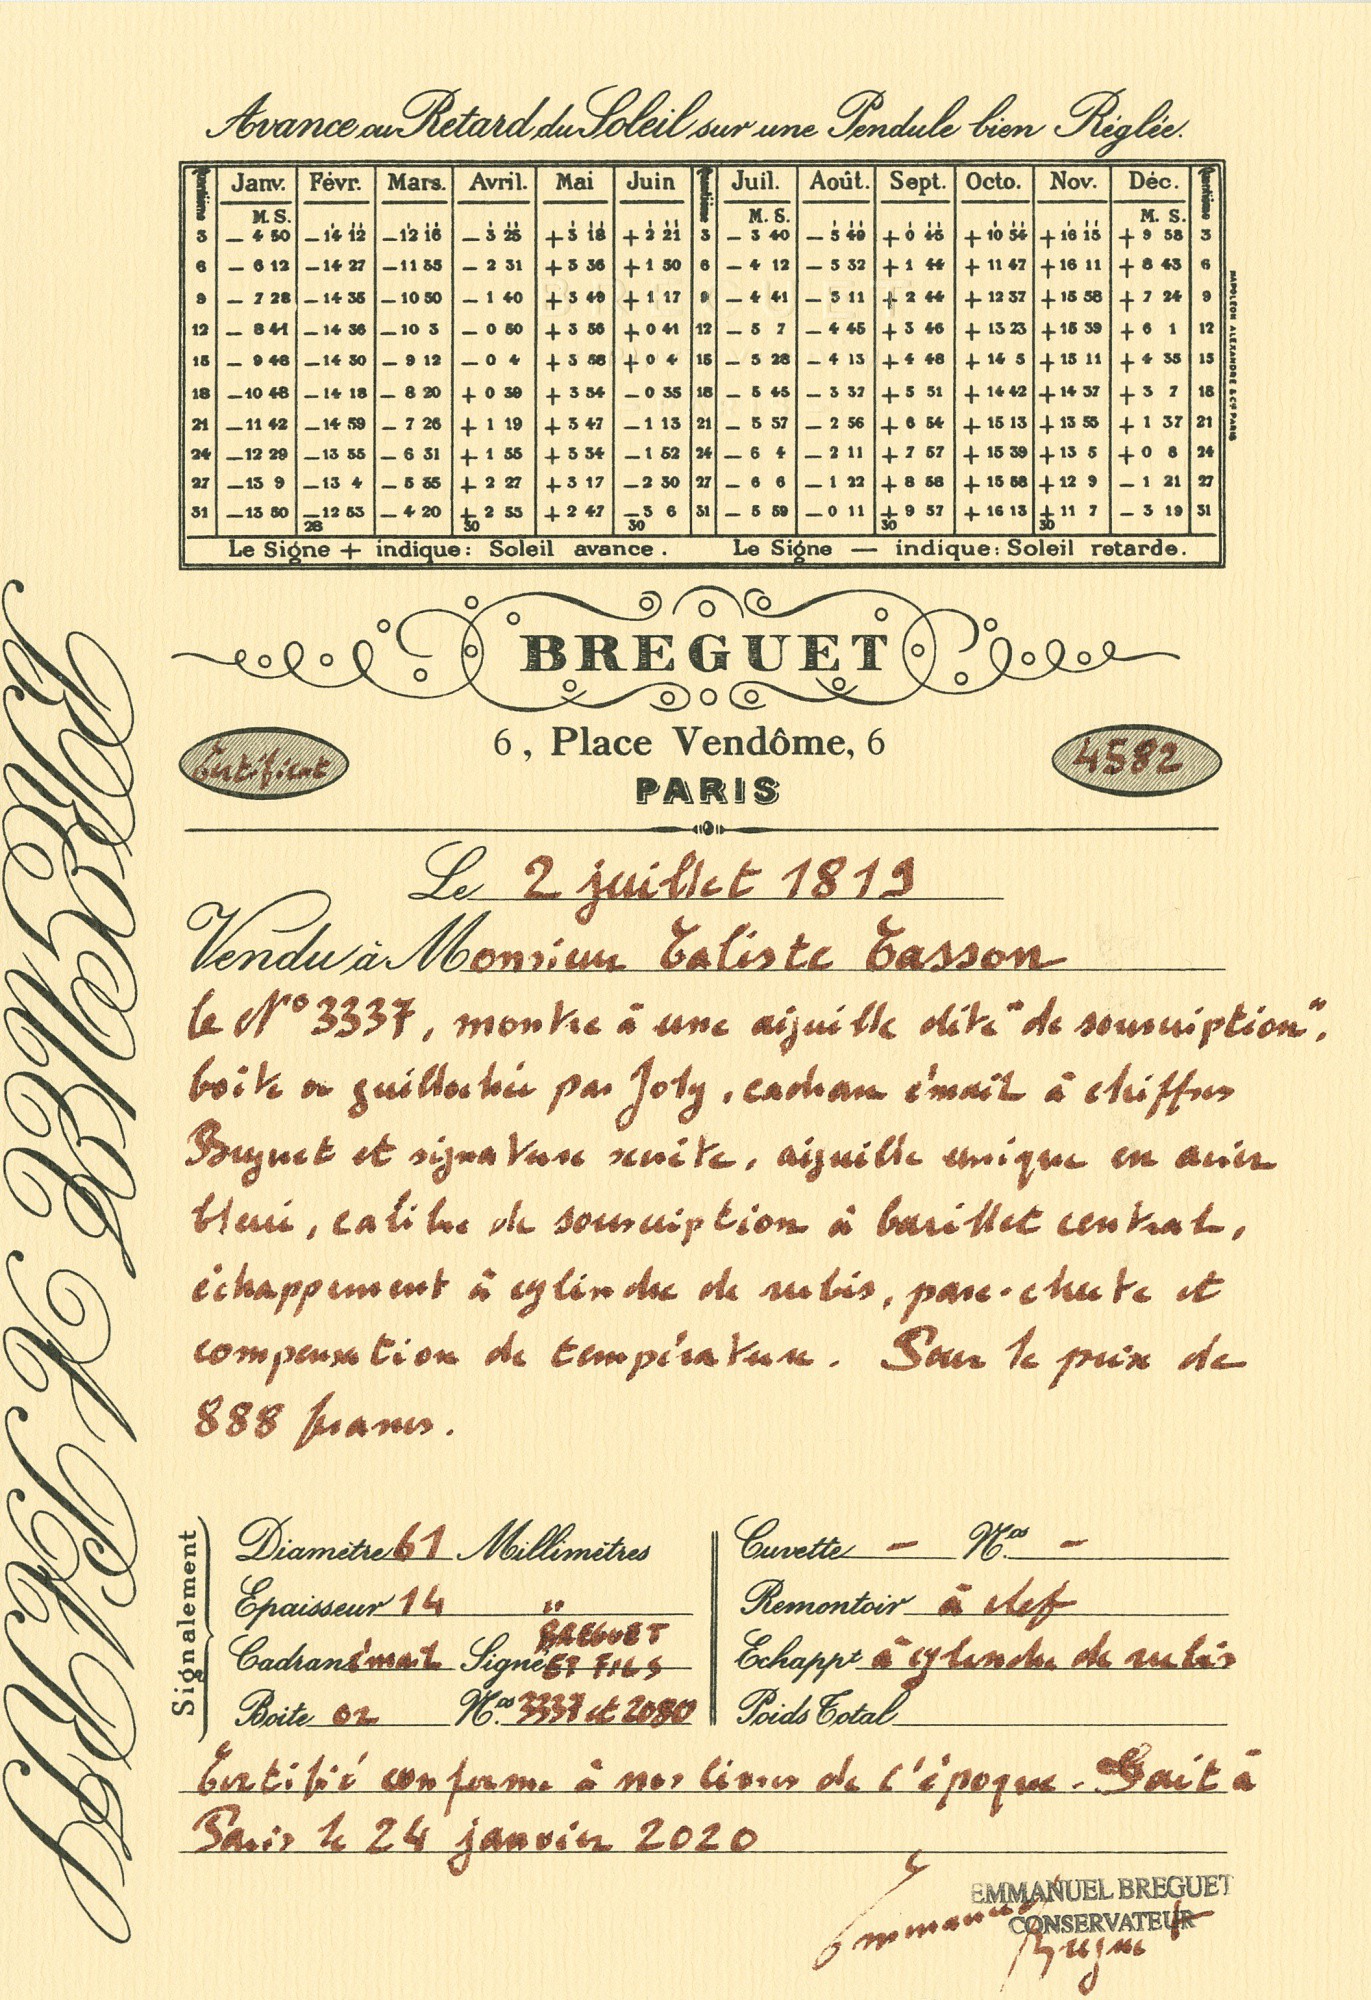 Avance ou Retard du Soleil sur une Pendule bien Réglée.
Quantième Janv. Févr. Mars. Avril. Mai Juin Quantième Juil. Août. Sept. Octo. Nov. Déc. Quantième
M. S. M. S. M. S.
3 — 4 50 — 14 12 — 12 16 — 3 25 + 3 18 + 2 21 3 — 3 40 — 5 49 + 0 45 + 10 54 + 16 15 + 9 58 3
6 — 6 12 — 14 27 — 11 35 — 2 31 + 3 36 + 1 50 6 — 4 12 — 5 32 + 1 44 + 11 47 + 16 11 + 8 43 6
9 — 7 28 — 14 35 — 10 50 — 1 40 + 3 49 + 1 17 9 — 4 41 — 5 11 + 2 44 + 12 37 + 15 58 + 7 24 9
12 — 8 41 — 14 36 — 10 3 — 0 50 + 3 56 + 0 41 12 — 5 7 — 4 45 + 3 46 + 13 23 + 15 39 + 6 1 12
15 — 9 46 — 14 30 — 9 12 — 0 4 + 3 58 + 0 4 15 — 5 28 — 4 13 + 4 48 + 14 5 + 15 11 + 4 35 15
18 — 10 48 — 14 18 — 8 20 + 0 39 + 3 54 — 0 35 18 — 5 45 — 3 37 + 5 51 + 14 42 + 14 37 + 3 7 18
21 — 11 42 — 14 59 — 7 26 + 1 19 + 3 47 — 1 13 21 — 5 57 — 2 56 + 6 54 + 15 13 + 13 55 + 1 37 21
24 — 12 29 — 13 35 — 6 31 + 1 55 + 3 34 — 1 52 24 — 6 4 — 2 11 + 7 57 + 15 39 + 13 5 + 0 8 24
27 — 13 9 — 13 4 — 5 35 + 2 27 + 3 17 — 2 30 27 — 6 6 — 1 22 + 8 58 + 15 58 + 12 9 — 1 21 27
31 — 13 50 — 12 53 — 4 20 + 2 53 + 2 47 — 3 6 31 — 5 59 — 0 11 + 9 57 + 16 13 + 11 7 — 3 19 31
28 30 30 30 30
Le Signe + indique: Soleil avance. Le Signe — indique: Soleil retarde.
NAPOLEON ALEXANDRE & Cie PARIS
BREGUET
6, Place Vendôme, 6
PARIS
Certificat
4582
Le 2 juillet 1819
Vendu à Monsieur Caliste Casson
le N° 3337, montre à une aiguille dite "de souscription",
boîte or guillochée par Joly, cadran émail à chiffres
Breguet et signature secrète, aiguille unique en acier
bleui, calibre de souscription à barillet central,
échappement à cylindre de rubis, pare-chute et
compensation de température. Pour le prix de
888 francs.
Signalement
Diamètre 61 Millimètres Cuvette – Nos –
Epaisseur 14 " Remontoir à clef
Cadran émail Signé BREGUET ET FILS Echappt à cylindre de rubis
Boîte or Nos 3337 et 2080 Poids Total
Certifié conforme à nos livres de l'époque. Fait à
Paris le 24 janvier 2020
EMMANUEL BREGUET
CONSERVATEUR
Emmanuel Breguet